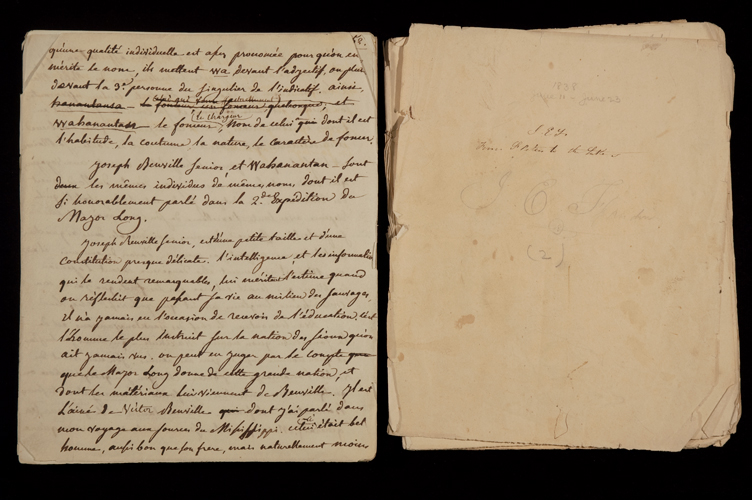 58.
qu'une qualité individuelle est assez prononcée pour qu'on en
mérite le nom, ils mettent wa devant l'adjectif, ou plus
devant la 3e personne du singulier de l'indicatif. ainsi
hanantansa — le fonceur un fonceur quelconque, et
Wahanantan — le fonceur, nom de celui dont il est
le chargeur
l'habitude, la coutume la nature, le caractère de foncer.
Joseph Renville Senior, et Wahanantan — sont
donc les mêmes individus de mêmes noms, dont il est
si honorablement parlé dans la 2de Expédition du
Major Long.
Joseph Renville Senior, est d'une petite taille et d'une
constitution presque délicate. l'intelligence et les informations
qui le rendent remarquables, lui méritent l'estime quand
on réfléchit que passant sa vie au milieu des sauvages,
il n'a jamais eu l'occasion de recevoir de l'éducation, c'est
l'homme le plus instruit sur la nation des sioux qu'on
ait jamais vu. on peut en juger par le compte que
que le Major Long donne de cette grande nation, et
dont les matériaux lui viennent de Renville. Il est
l'ainé de Victor Renville dont j'ai parlé dans
mon voyage aux sources du Mississippi. celui était bel
homme, aussi bon que son frère, mais naturellement moins
1838
June 23
(2)